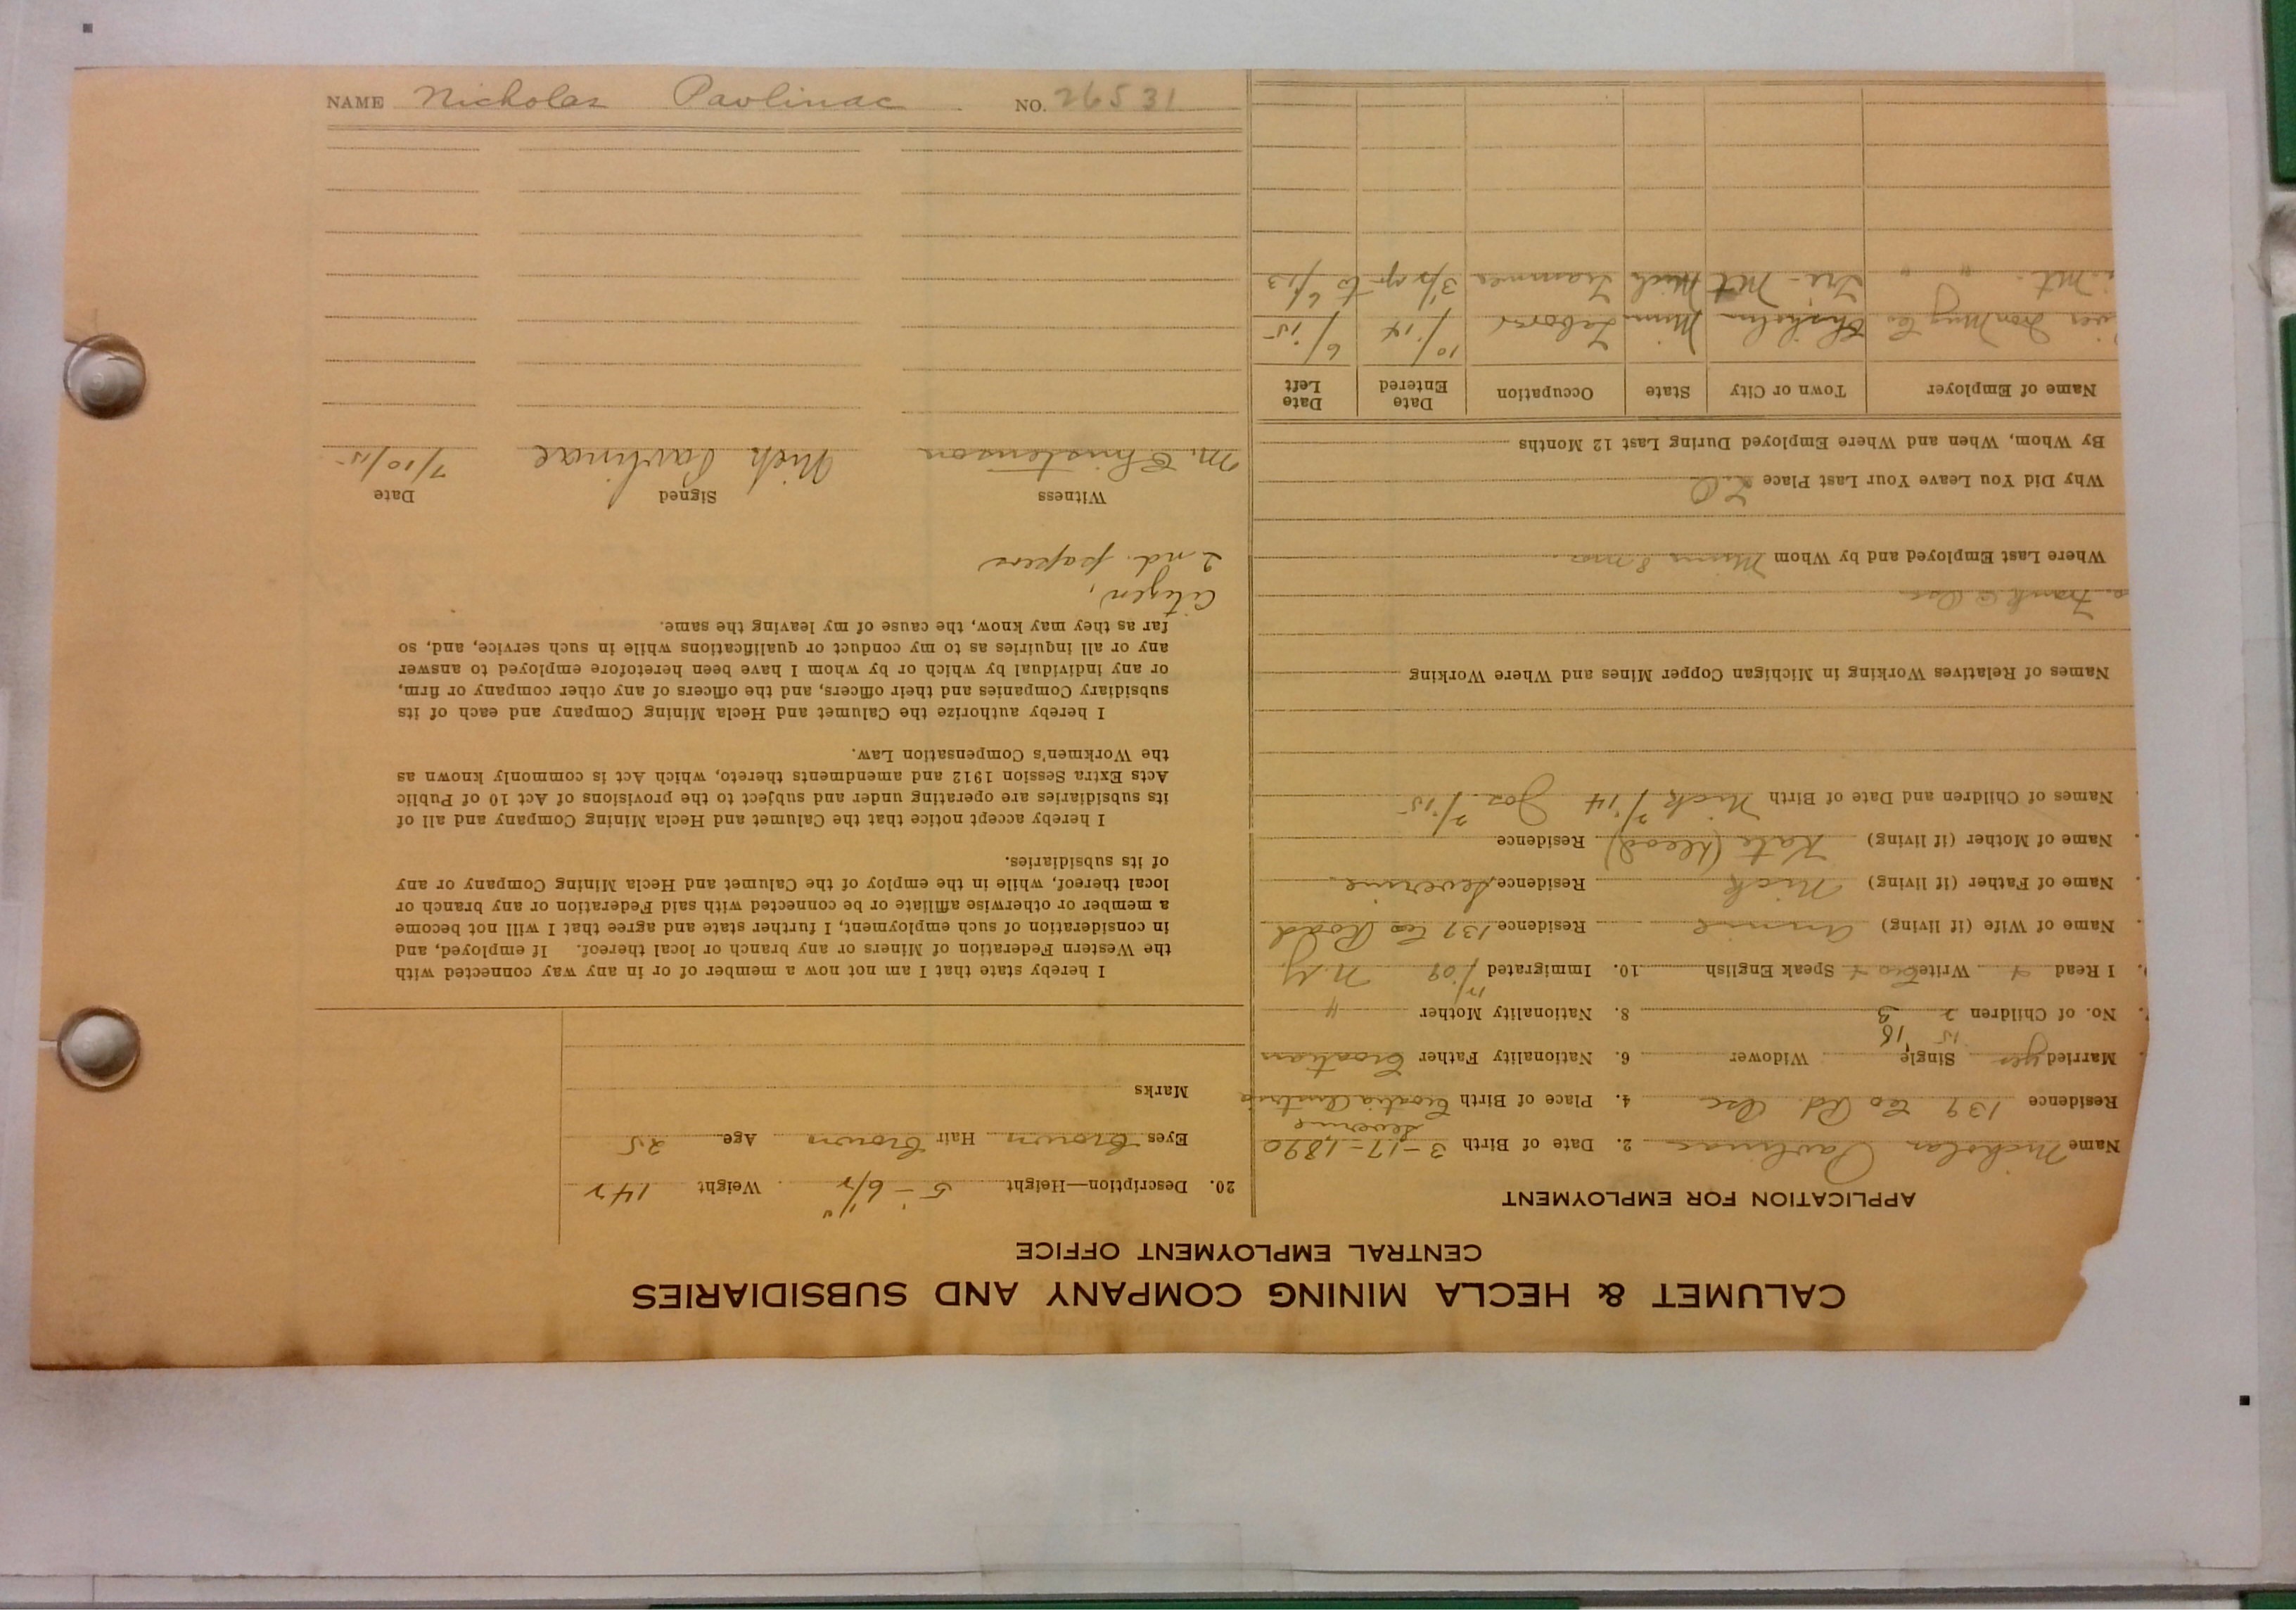 CALUMET & HECLA MINING COMPANY AND SUBSIDIARIES
CENTRAL EMPLOYMENT OFFICE
APPLICATION FOR EMPLOYMENT
Name Nicholas Pavlinac 2. Date of Birth 3-17-1890
Residence 139 Co Rd. Osc 4. Place of Birth Severine Croatia Austria
Married yes Single Widower 6. Nationality Father Croatian
15 18
No. of Children 2 3 8. Nationality Mother "
I Read + Write Cro + Speak English 10. Immigrated 12/09 N.Y.
Name of Wife (if living) Annie Residence 139 Co Road
Name of Father (if living) Nick Residence Severine
Name of Mother (if living) Kate (dead) Residence
Names of Children and Date of Birth Nick 2/14 Jos 2/15
Names of Relatives Working in Michigan Copper Mines and Where Working
Frank @ Osc
Where Last Employed and by Whom Minn 8 mo
Why Did You Leave Your Last Place L.O
By Whom, When and Where Employed During Last 12 Months
Name of Employer Town or City State Occupation Date Entered Date Left
Iron Mng Co Chisholm Minn Labor 10/14 6/15
Mt. " " Iro-Mt Mich Trammer to 6/13
20. Description—Height 5'-6 1/2" Weight 142
Eyes Brown Hair Brown Age 25
Marks
I hereby state that I am not now a member of or in any way connected with
the Western Federation of Miners or any branch or local thereof. If employed, and
in consideration of such employment, I further state and agree that I will not become
a member or otherwise affiliate or be connected with said Federation or any branch or
local thereof, while in the employ of the Calumet and Hecla Mining Company or any
of its subsidiaries.
I hereby accept notice that the Calumet and Hecla Mining Company and all of
its subsidiaries are operating under and subject to the provisions of Act 10 of Public
Acts Extra Session 1912 and amendments thereto, which Act is commonly known as
the Workmen's Compensation Law.
I hereby authorize the Calumet and Hecla Mining Company and each of its
subsidiary Companies and their officers, and the officers of any other company or firm,
or any individual by which or by whom I have been heretofore employed to answer
any or all inquiries as to my conduct or qualifications while in such service, and, so
far as they may know, the cause of my leaving the same.
Citizen,
2nd. papers
Witness Signed Date
M. Christenson Nick Pavlinac 7/10/15
NAME Nicholas Pavlinac NO. 26531